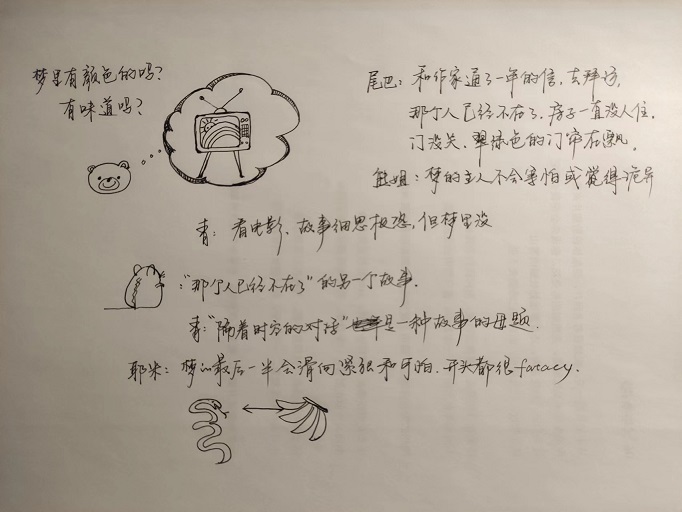 梦里有颜色的吗?
有味道吗?
尾巴: 和作家通了一年的信, 去拜访,
那个人已经不在了, 房子一直没人住.
门没关, 翠绿色的门帘在飘。
熊姐: 梦的主人不会害怕或觉得诡异
青: 看电影、故事细思极恐, 但梦里没
:"那个人已经不在了"的另一个故事.
青:"隔着时空的对话" 是一种故事的母题.
耶米: 梦 最后一半会滑向紧张和可怕. 开头都很fatacy.